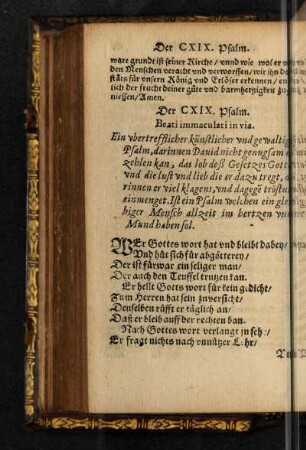 Der CXIX. Psalm.
ware grundt ist seiner Kirche/ vnnd wie wol er
den Menschen veracht vnd verworffen/ wir ihn
stäts für vnsern König vnd Erlöser erkennen/
lich der frucht deiner güte vnd barmhertzigkeit
niessen/Amen.
Der CXIX. Psalm.
Beati immaculati in via.
Ein vbertrefflicher künstlicher vnd gewaltig
Psalm, darinnen Dauid nicht genugsam
zehlen kan, das lob deß Gesetzes Gott
vnd die lust vnd lieb die er dazu tregt,
rinnen er viel klagens, vnd dagegē tröstu
einmenget. Ist ein Psalm welchen ein gleu
biger Mensch allzeit im hertzen vn
Mund haben sol.
WEr Gottes wort hat vnd bleibt dabey/
Vnd hüt sich für abgötterey/
Der ist fürwar ein seliger man/
Der auch den Teuffel trutzen kan.
Er helt Gottes wort für kein gedicht/
Zum Herren hat sein zuversicht/
Denselben rüfft er täglich an/
Daß er bleib auff der rechten ban.
Nach Gottes wort verlangt jn seh:/
Er fragt nichts nach vnnützer Lehr/